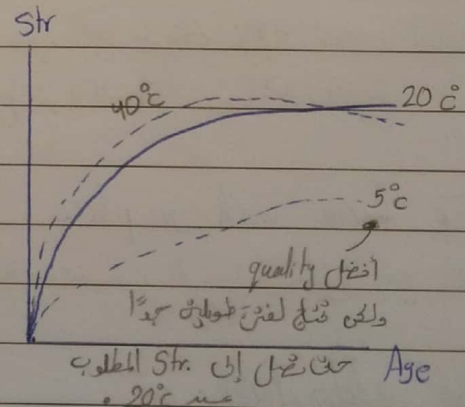 Str
40°c
20°c
5°c
أفضل quality
ولكن تحتاج لفترة طويلة جدًا
حتى تصل إلى Str. المطلوب
Age
عند 20°c.